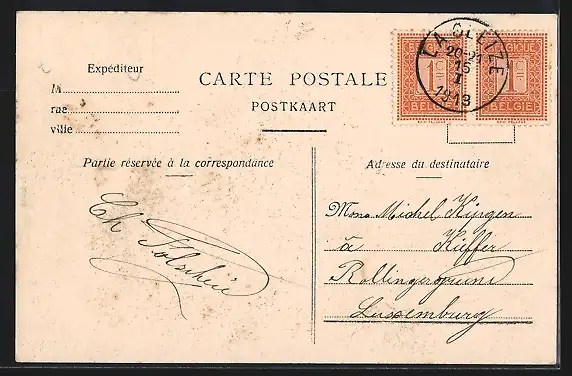 Expéditeur
M
rue
ville
CARTE POSTALE
POSTKAART
BELGIQUE BELGIQUE
1C 1C
BELGIE BELGIE
LA GLEIZE
20-21
15
I
1913
Partie réservée à la correspondance
Adresse du destinataire
Ch
Mme Michel Kipgen
à Kieffer
Rollingergrund
Luxemburg